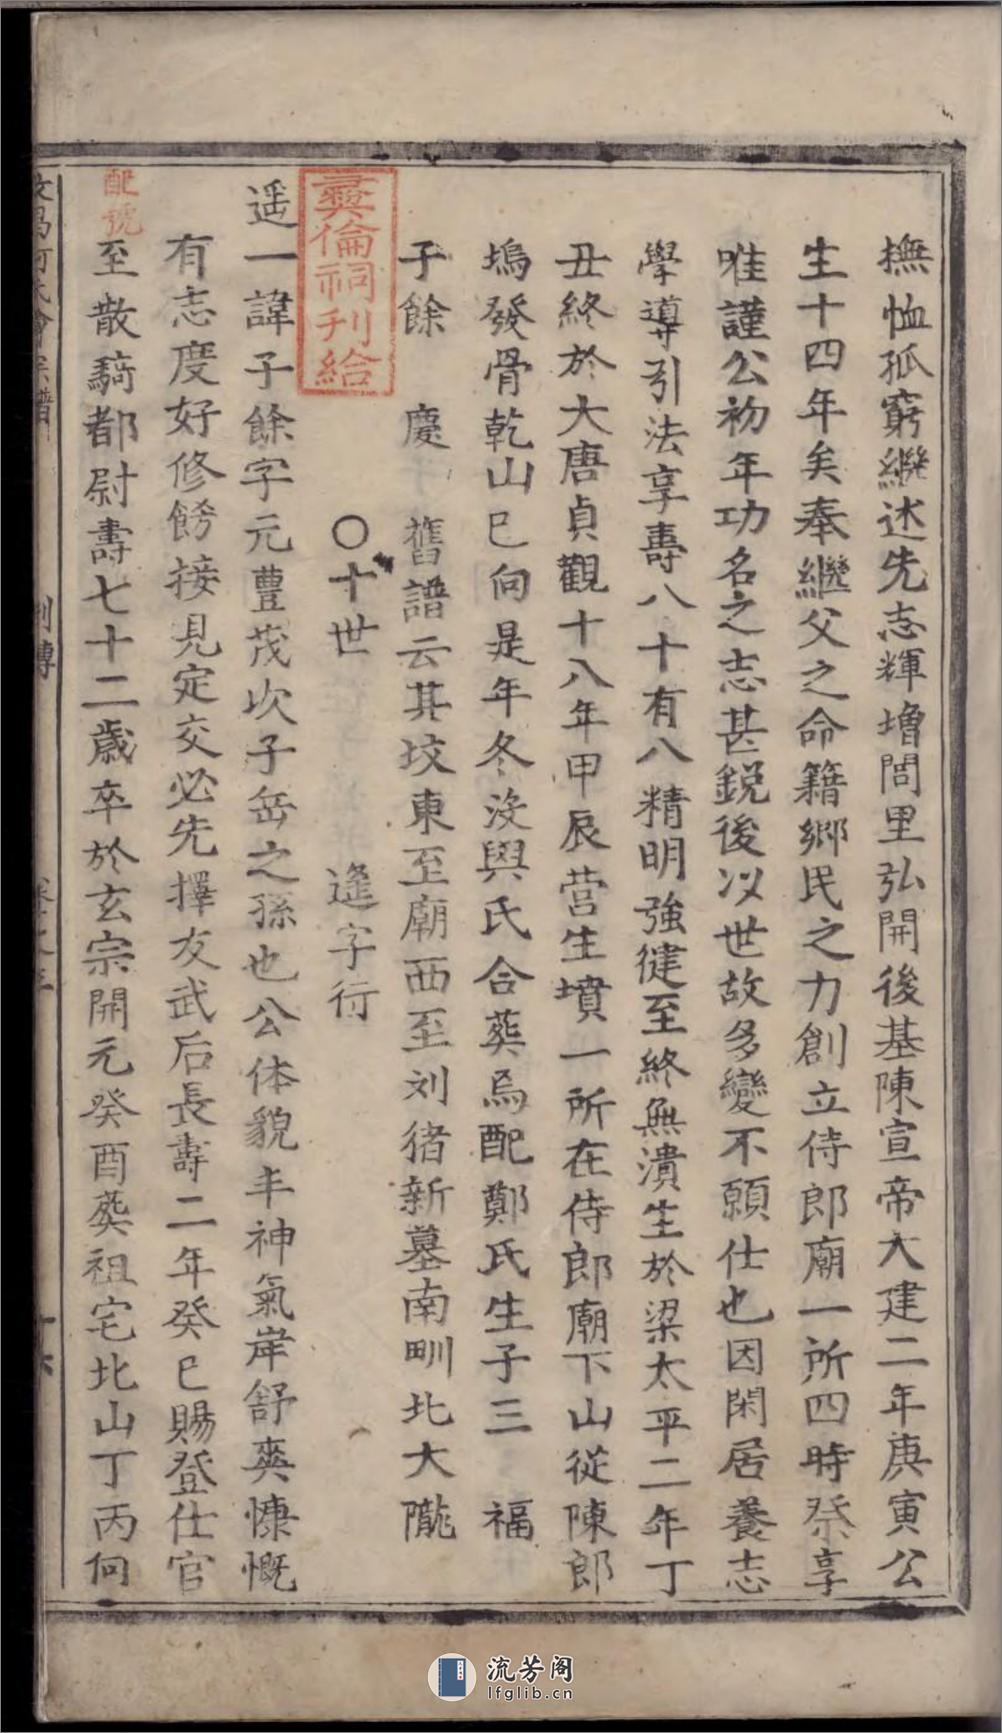 撫恤孤窮繼述先志輝增閭里弘開後基陳宣帝大建二年庚寅公
生十四年矣奉繼父之命籍鄉民之力創立侍郎廟一所四時祭享
唯謹公初年功名之志甚銳後以世故多變不願仕也因閑居養志
學導引法享壽八十有八精明強健至終無潰生於梁太平二年丁
丑終於大唐貞觀十八年甲辰营生墳一所在侍郎廟下山從陳郎
塢發骨乾山巳向是年冬沒與氏合葬焉配鄭氏生子三 福
子餘 慶 舊譜云其坟東至廟西至刘猪新墓南畎北大隴
〇十世 逢字行
彛倫祠刋給
遥一諱子餘字元豊茂次子岳之孫也公体貌丰神氣岸舒爽慷慨
有志度好修餝接見定交必先擇友武后長壽二年癸巳賜登仕官
至散騎都尉壽七十二歲卒於玄宗開元癸酉葵祖宅北山丁丙向
配號
會宗譜
列傳